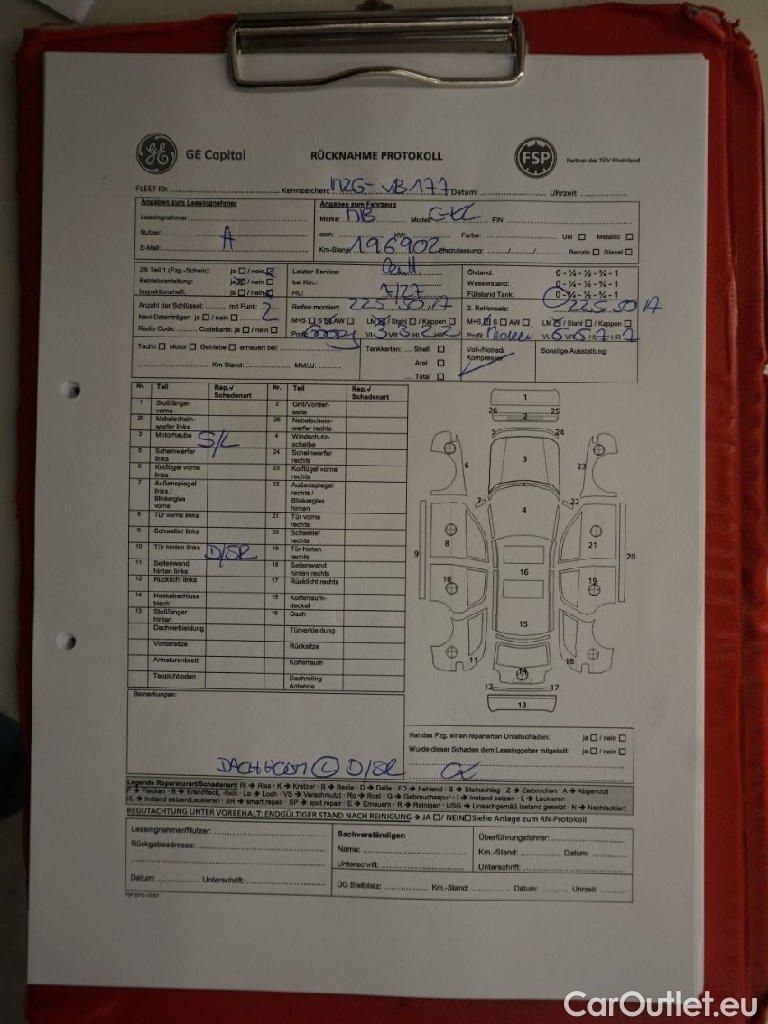 GE Capital RÜCKNAHME PROTOKOLL FSP Partner des TÜV Rheinland
FLEET ID: Kennzeichen: MZG-VB177 Datum: Uhrzeit:
Angaben zum Leasingnehmer
Leasingnehmer:
Nutzer: A
E-Mail:
Angaben zum Fahrzeug
Marke: MB Modell: FIN
ccm: KW: Farbe: Uni Metallic
Km-Stand: 196902 Erstzulassung: / / Benzin Diesel
ZB Teil 1 (Fzg.-Schein): ja / nein
Betriebsanleitung: ja / nein
Inspektionsheft: ja / nein
Letzter Service:
bei Km:
HU: 7/27
Ölstand: 0 - ¼ - ½ - ¾ - 1
Wasserstand: 0 - ¼ - ½ - ¾ - 1
Füllstand Tank: 0 - ¼ - ½ - ¾ - 1
Anzahl der Schlüssel: mit Funk: 2
Navi Datenträger: ja / nein
Radio Code: Codekarte: ja / nein
Reifen montiert: 225 50 17
M+S S AW LM / Stahl / Kappen
Profil:
2. Reifensatz: 225 50 17
M+S S AW LM / Stahl / Kappen
Profil: VL 6 VR 6 HL 7 HR 7
Tacho Motor Getriebe erneuert bei:
Km Stand: MM/JJ:
Tankkarten: Shell
Aral
Total
Voll-/Notrad
Kompressor
Sonstige Ausstattung:
Nr. Teil Rep.-/ Schadenart Nr. Teil Rep.-/ Schadenart
1 Stoßfänger vorne 2 Grill/Vorderseite
26 Nebelscheinwerfer links 25 Nebelscheinwerfer rechts
3 Motorhaube S/L 4 Windschutzscheibe
5 Scheinwerfer links 24 Scheinwerfer rechts
6 Kotflügel vorne links 23 Kotflügel vorne rechts
7 Außenspiegel links / Blinkerglas vorne 22 Außenspiegel rechts / Blinkerglas hinten
8 Tür vorne links 21 Tür vorne rechts
9 Schweller links 20 Schweller rechts
10 Tür hinten links D/SR 19 Tür hinten rechts
11 Seitenwand hinten links 18 Seitenwand hinten rechts
12 Rücklicht links 17 Rücklicht rechts
14 Heckabschlussblech 15 Kofferraumdeckel
13 Stoßfänger hinten 16 Dach
Dachverkleidung Türverkleidung
Vordersitze Rücksitze
Armaturenbrett Kofferraum
Teppichboden Dachreling Antenne
1
26 25
2
5 24
3
6 23
7 22
4
8 21
9 20
16
10 19
15
11 18
14
12 17
13
Bemerkungen:
Hat das Fzg. einen reparierten Unfallschaden: ja / nein
Wurde dieser Schaden dem Leasinggeber mitgeteilt: ja / nein
L D/SR
Legende Reparaturart/Schadenart: RI → Riss - K → Kratzer - B → Beule - D → Delle - FD → Fehlend - S → Steinschlag - Z → Zerbrochen - A → Abgenutzt
F → Flecken - B → Brandfleck, -loch - Lo → Loch - VS → Verschmutzt - Ro → Rost - G → Gebrauchsspur - I → Instand setzen - L → Lackieren
I/L → Instand setzen/Lackieren - SR → smart repair - SP → spot repair - E → Erneuern - R → Reinigen - USA → Unsachgemäß instand gesetzt - N → Nachlackiert
BEGUTACHTUNG UNTER VORBEHALT: ENDGÜLTIGER STAND NACH REINIGUNG → JA / NEIN Siehe Anlage zum RN-Protokoll
Leasingnehmer/Nutzer:
Rückgabeadresse:
Datum: Unterschrift:
Sachverständiger:
Name:
Unterschrift:
Überführungsfahrer:
Km.-Stand: Datum:
Unterschrift:
ÜG Stellplatz: Km.-Stand Datum: Uhrzeit
CarOutlet.eu